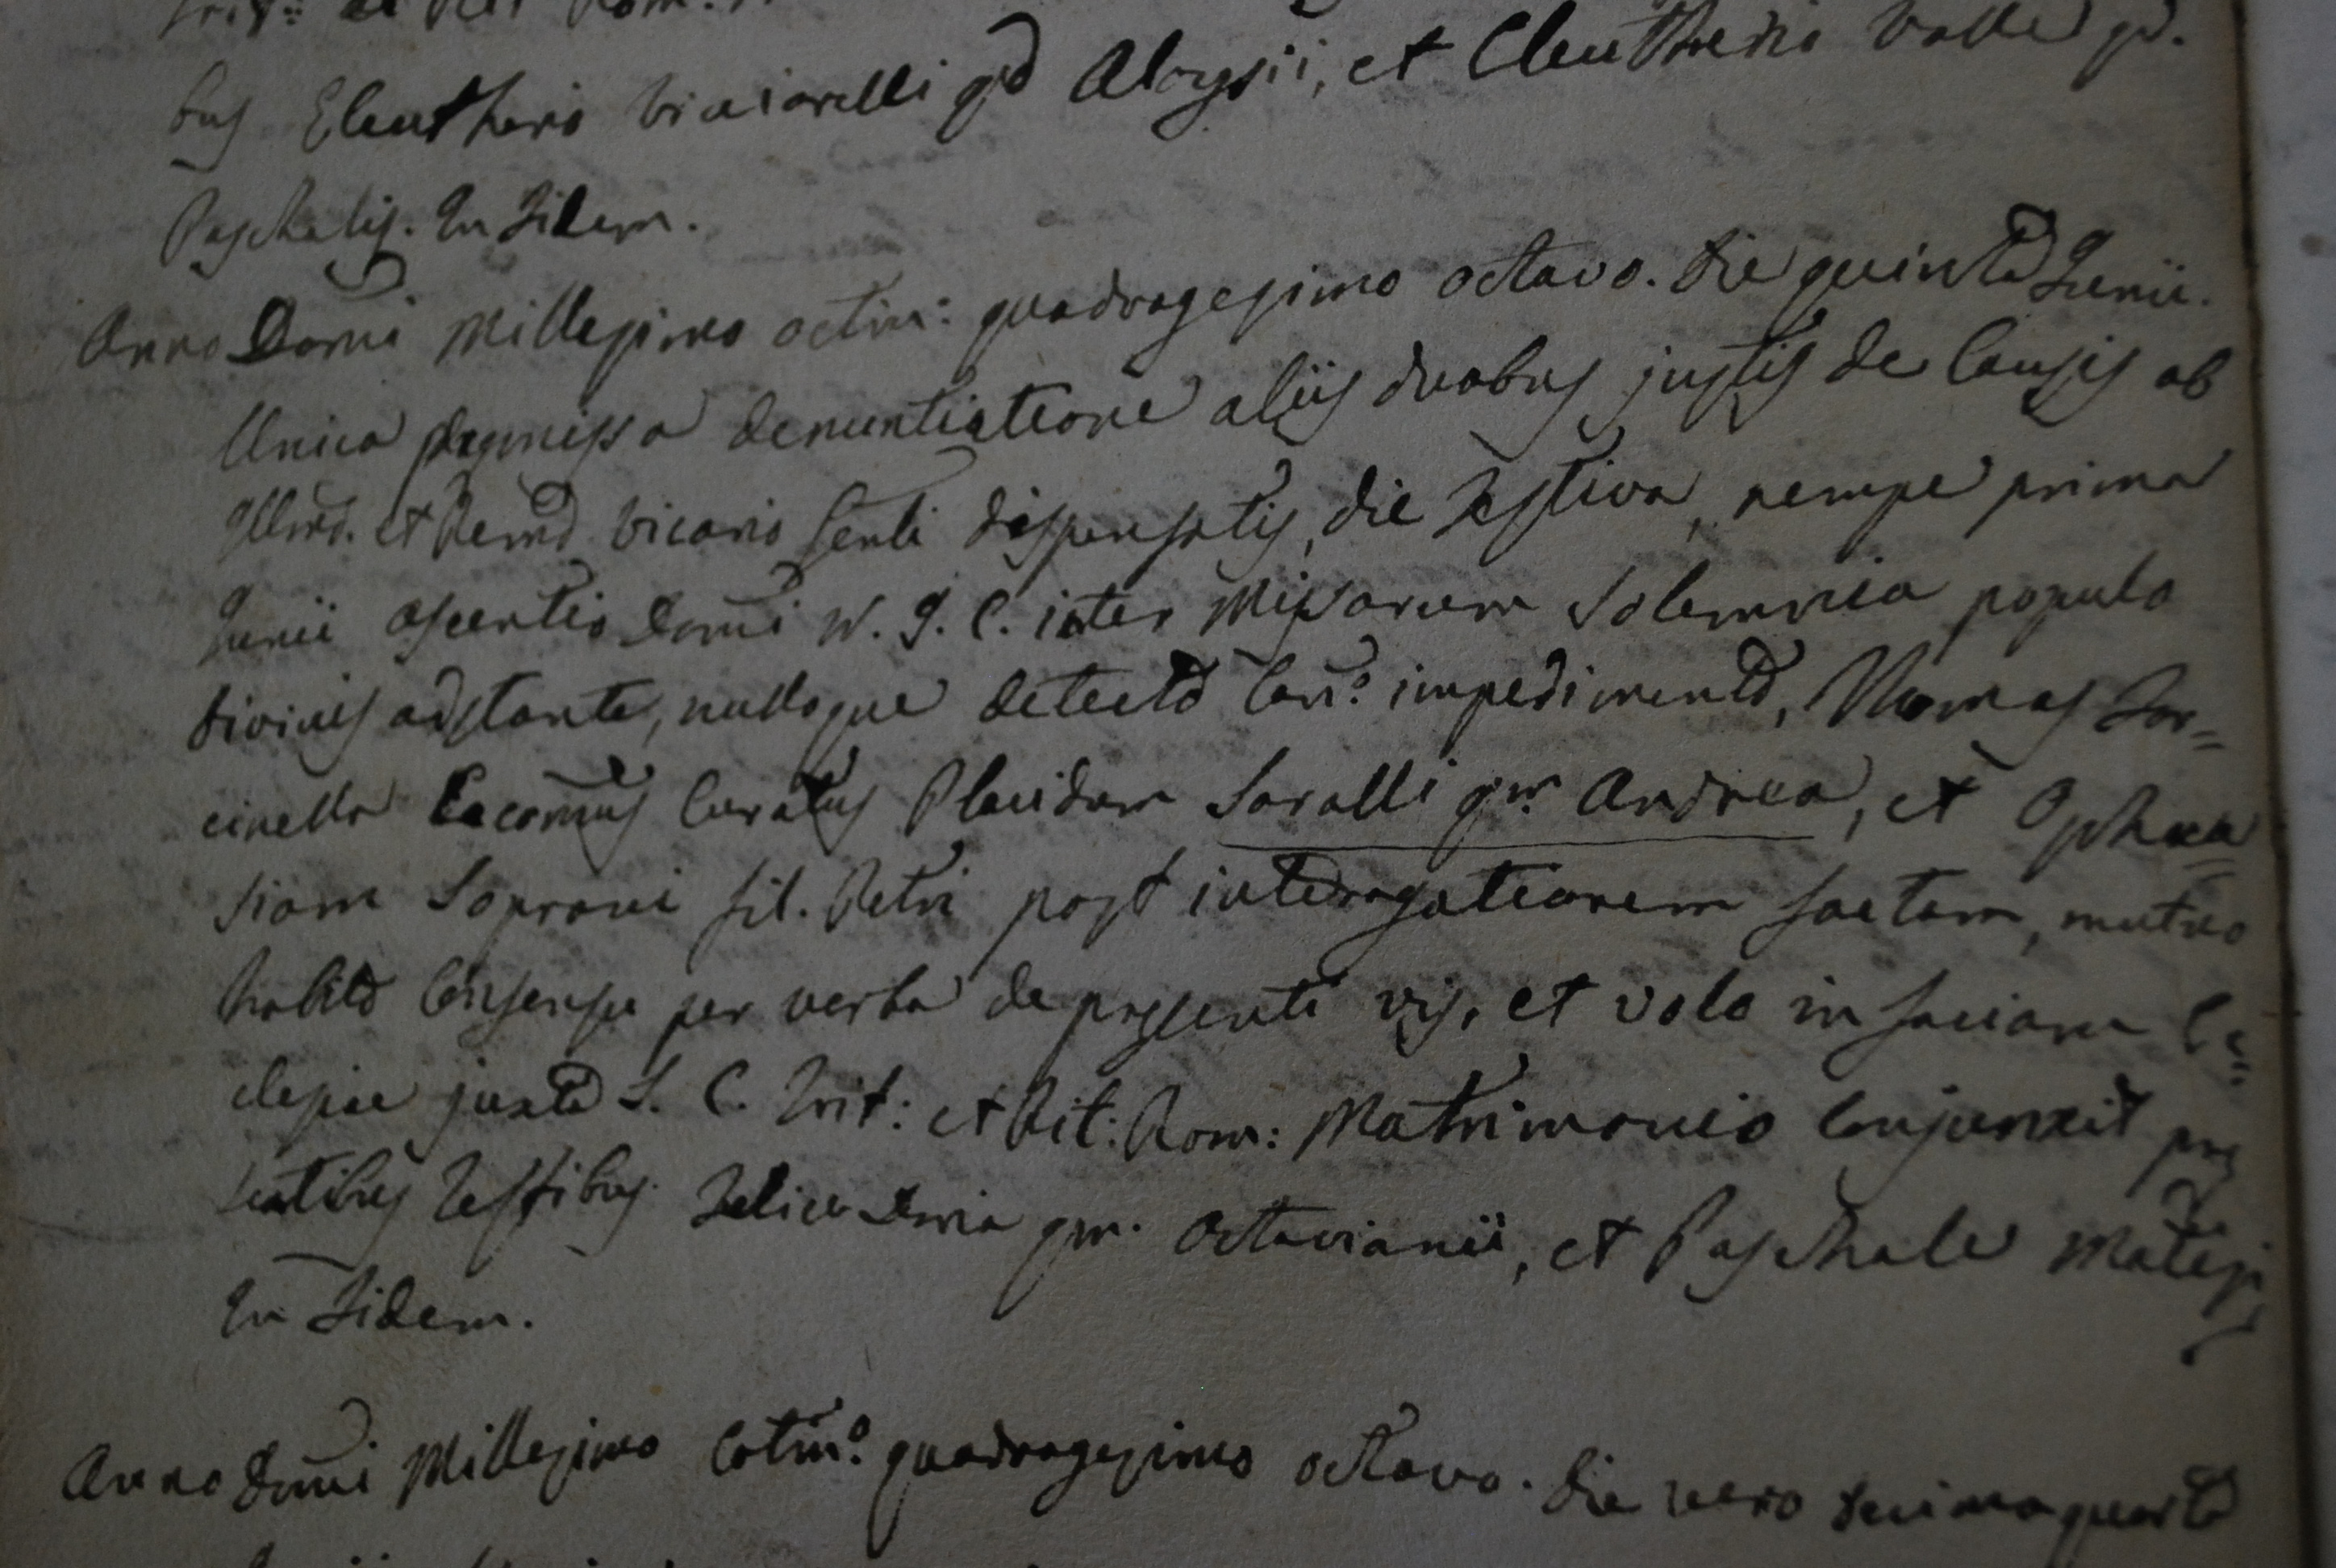 bus Eleutherio Viciarelli qd Aloysii, et Eleutherio Valle qd.
Paschalis. In Fidem.
Anno Domi Millesimo octin: quadragesimo octavo. Die quinta Junii.
Unica premissa denuntiatione aliis duabus justis de Causis ab
Illmo. et Remo Vicario Genli dispensatis, die Festiva, nempe prima
Junii Ascentio Domi N. J. C. inter Missarum Solemnia populo
divinis adstante, nulloque detecto Can:o impedimento, Thomas For=
cinella Econmus Curatus Placidum Saralli qm. Andrea, et Ophra=
siam Soprani fil. Petri post interrogationem factam, mutuo
habito Consensu per verba de presenti vis, et volo in faciem Ec=
clesiae juxta S. C. Trit: et Rit: Rom: Matrimonio Conjunxit pre
sentibus Testibus Felice qm. Octavianii, et Paschale
In Fidem.
Anno Domi Millesimo Octin:o quadragesimo octavo. Die vero decimaquarta